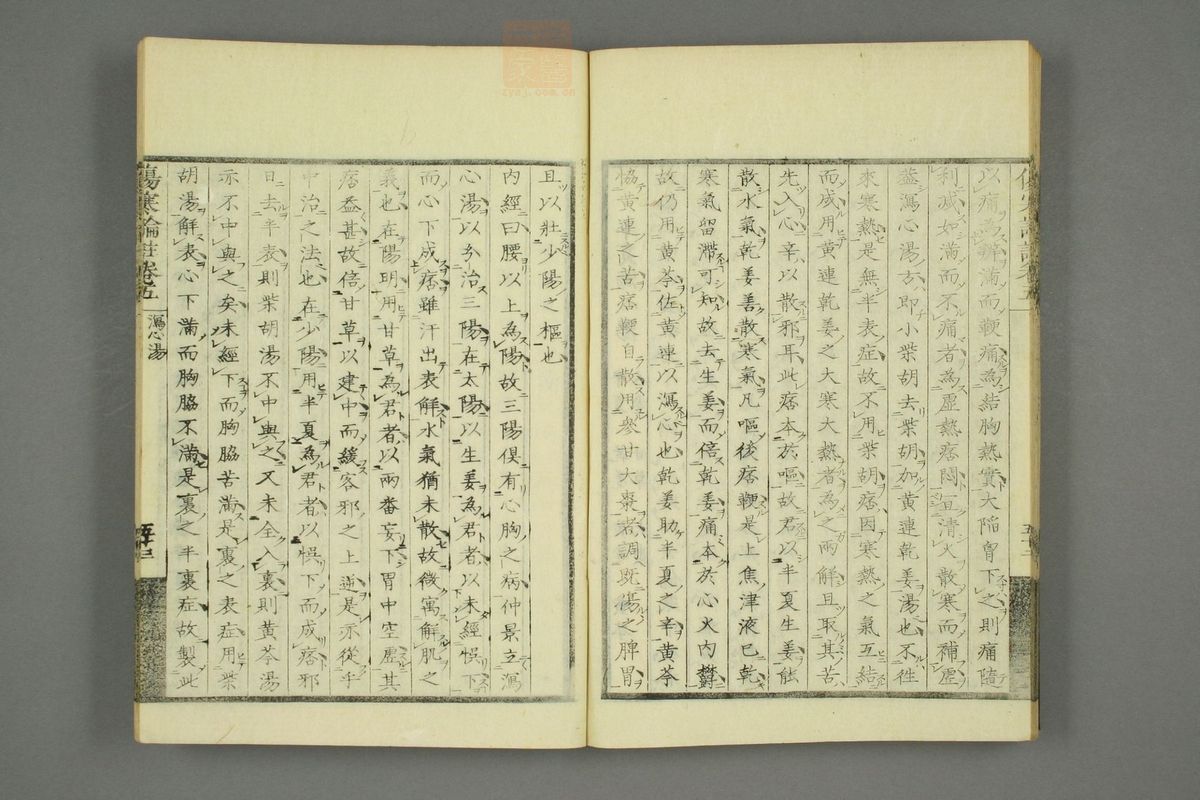 以痛爲辨滿而鞕痛爲結胸熱實大陷胷下之則痛隨
利減如滿而不痛者爲虛熱痞悶宜淸火散寒而補虛
葢瀉心湯方卽小柴胡去柴胡加黃連乾姜湯也不徃
來寒熱是無半表症故不用柴胡痞因寒熱之氣互結
而成用黃連乾姜之大寒大熱者爲之兩解且取其苦
先入心辛以散邪耳此痞本於嘔故君以半夏生姜能
散水氣乾姜善散寒氣凡嘔後痞鞕是上焦津液已乾
寒氣留滯可知故去生姜而倍乾姜痛本於心火內欝
故仍用黃芩佐黃連以瀉心也乾姜助半夏之辛黃芩
恊黃連之苦痞鞕自散用參甘大棗者調旣傷之脾胃
且以壯少陽之樞也
內經曰腰以上爲陽故三陽俱有心胸之病仲景立瀉
心湯以分治三陽在太陽以生姜爲君者以未經悞下
而心下成痞雖汗出表解水氣猶未散故微寓解肌之
義也在陽明用甘草爲君者以兩番妄下胃中空虛其
痞益甚故倍甘草以建中而緩客邪之上逆是亦從乎
中治之法也在少陽用半夏爲君者以悞下而成痞邪
已去半表則柴胡湯不中與之又未全入裏則黃芩湯
亦不中與之矣未經下而胸脇苦滿是裏之表症用柴
胡湯解表心下滿而胸脇不滿是裏之半裏症故製此
傷寒論註卷五
瀉心湯
zysj.com.cn